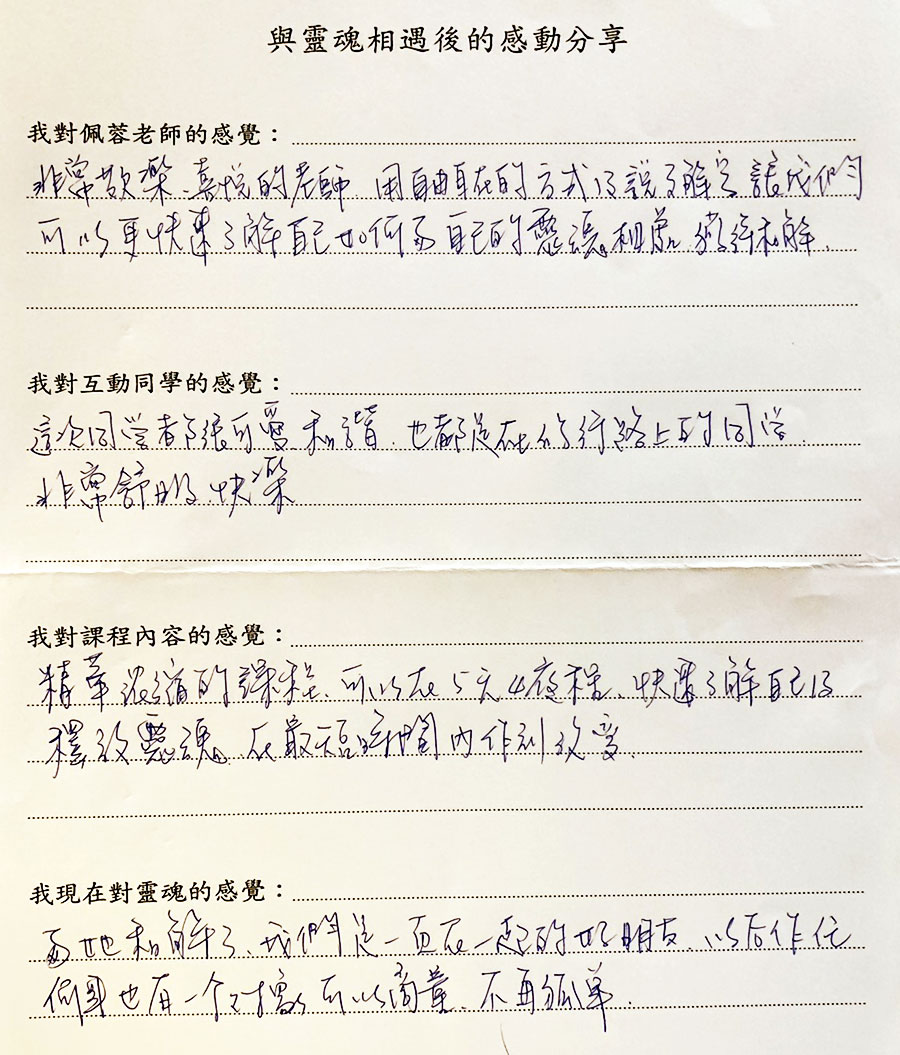 與靈魂相遇後的感動分享
我對佩蓉老師的感覺：
非常歡樂、喜悅的老師 用自由自在的方式 解 讓我們
可以更快速了解自己如何與自己的靈魂相處 和解.
我對互動同學的感覺：
這次同学都很可愛和諧. 也都是在修行路上的同学.
非常舒服.快樂
我對課程內容的感覺：
精華濃縮的課程、可以在5天4夜裡、快速了解自己及
釋放靈魂. 在最短時間內作到改變.
我現在對靈魂的感覺：
與她和解了、我們是一直在一起的好朋友、以后作任
何 也有一个对像 可以商量、不再孤单.